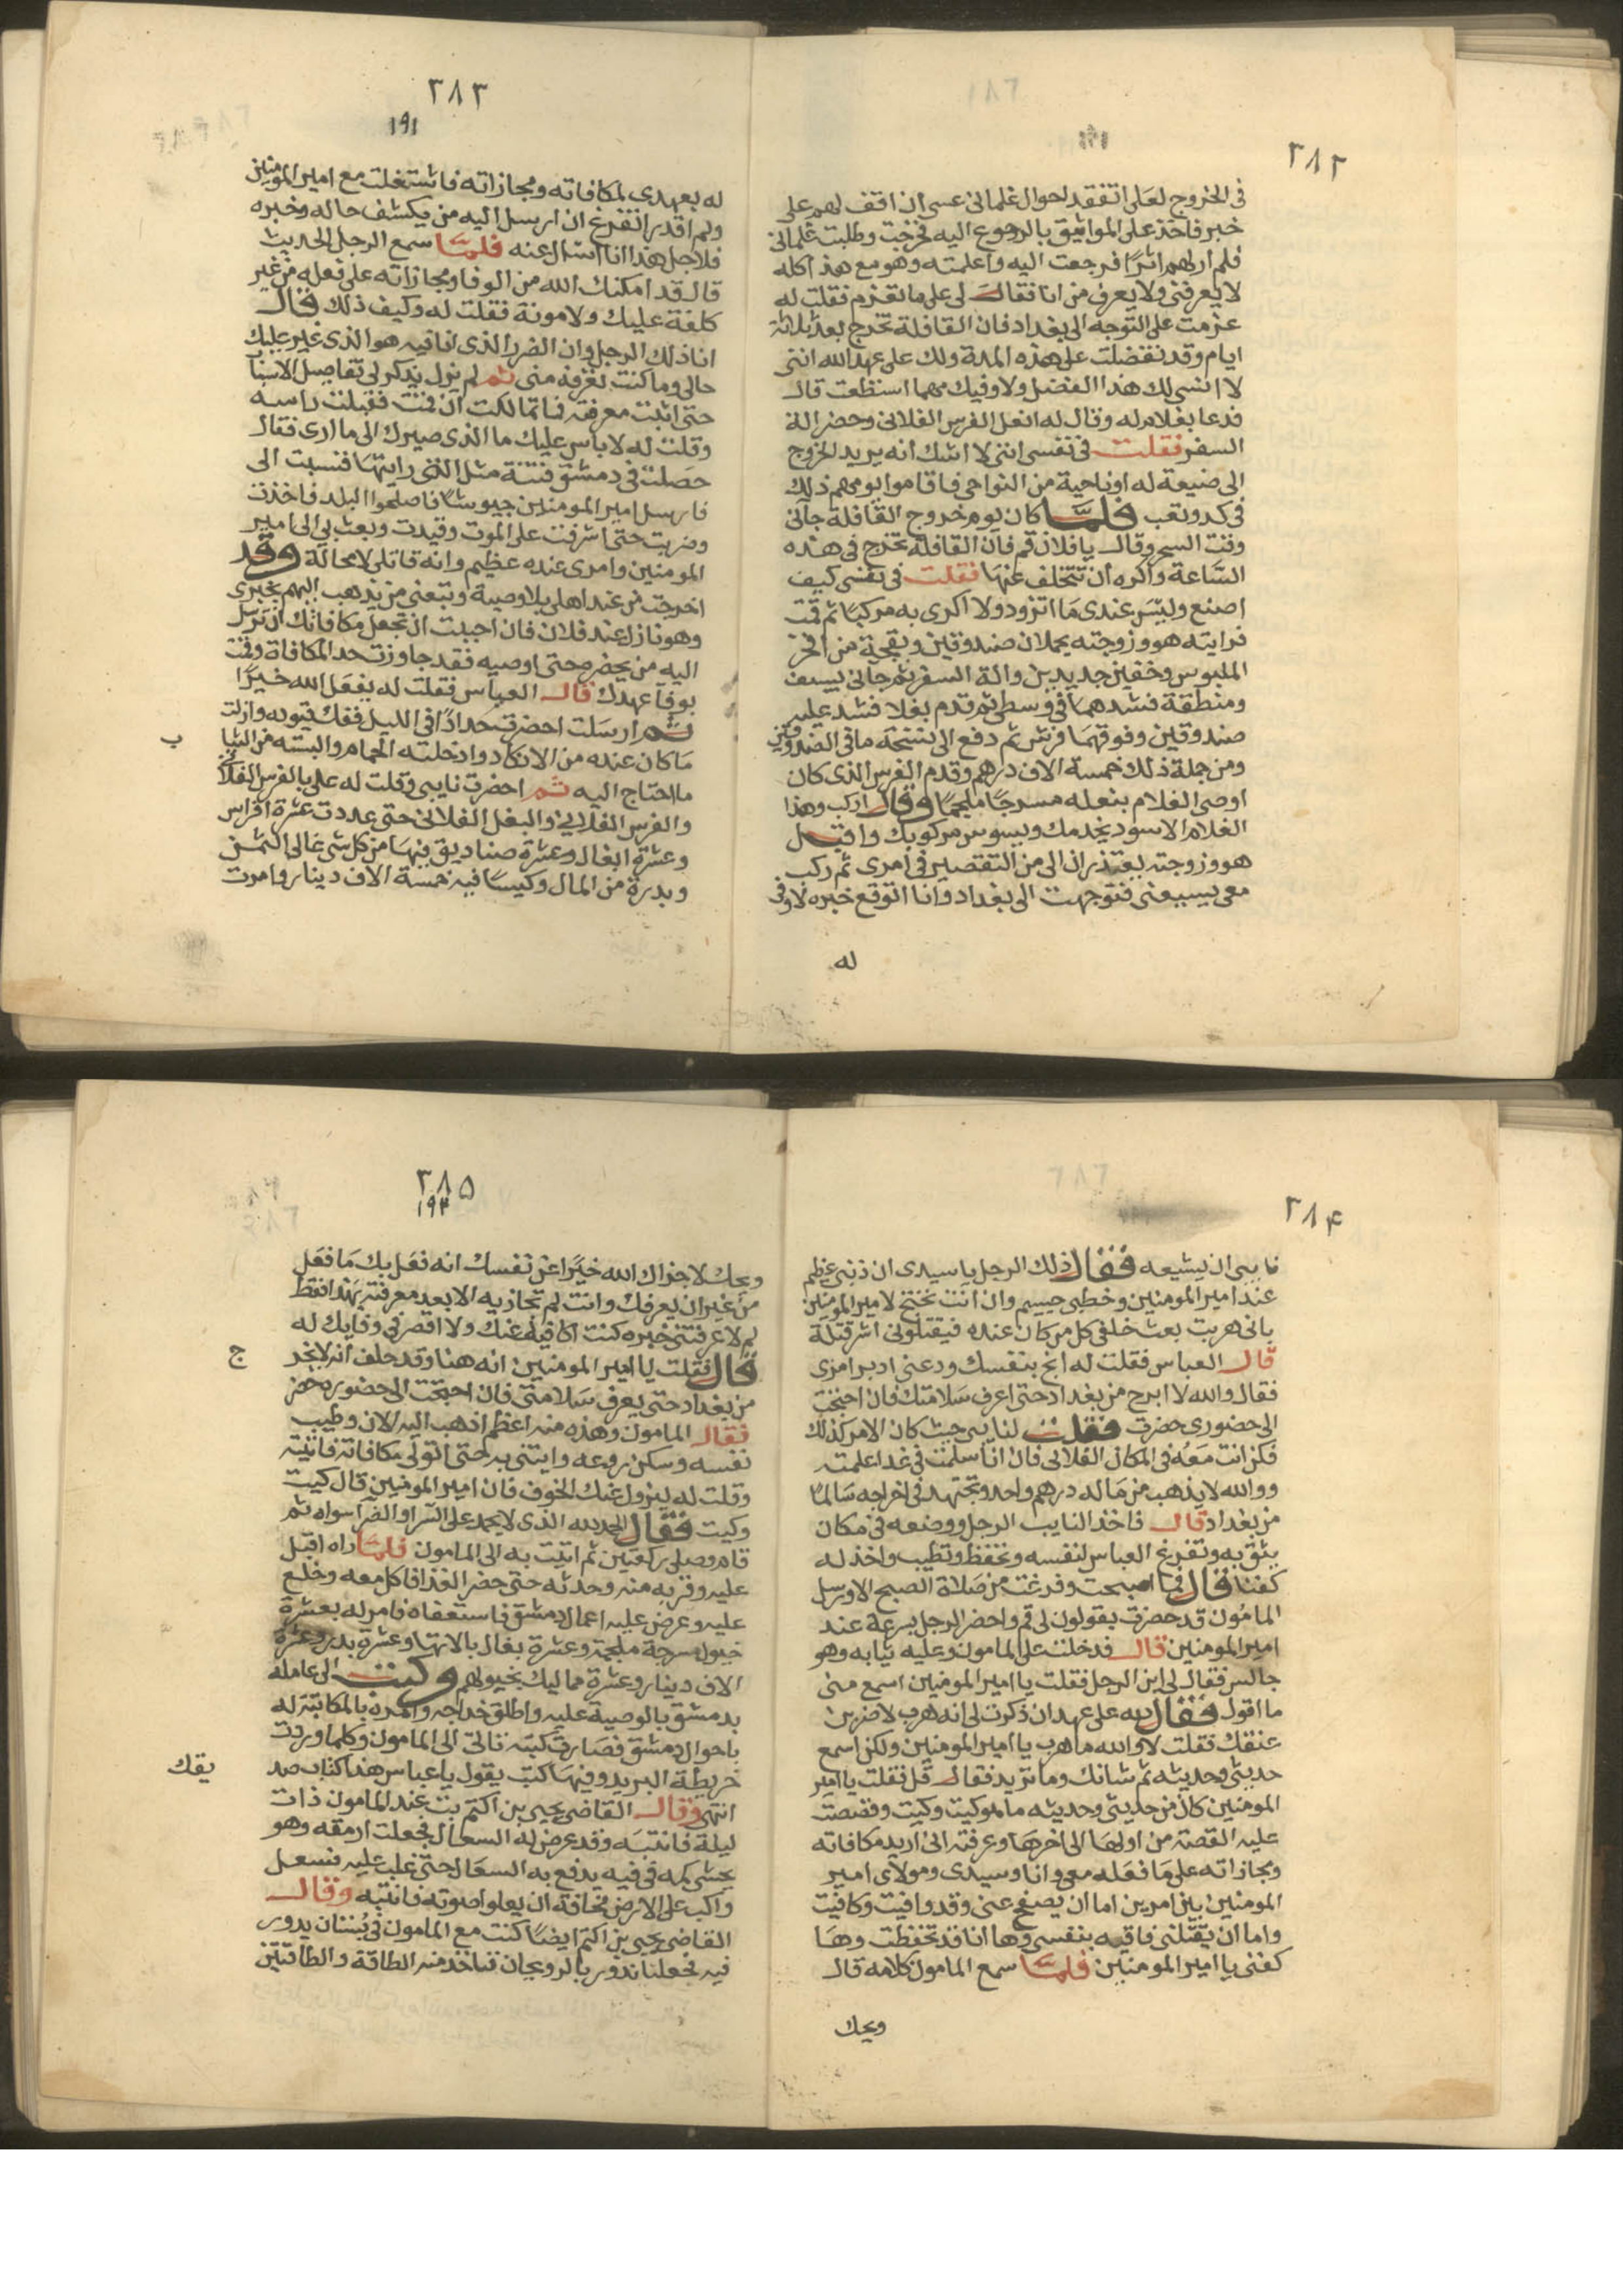 ٢٨٢
فى الخروج لعلى اتفقد احوال غلمانى عسى ان اقف لهم على
خبر فاخذ على المواثيق بالرجوع اليه فخرجت وطلبت غلمانى
فلم ار لهم اثرًا فرجعت اليه واعلمته وهو مع هذا كله
لا يعرفنى ولا يعرف من انا فقال لى على ما تعزم فقلت له
عزمت على التوجه الى بغداد فان القافلة تخرج بعد ثلاثة
ايام وقد تفضلت على هذه المدة ولك على عهد الله اننى
لا انسى لك هذا الفضل ولاوفيك مهما استطعت قال
فدعا بغلام له وقال له انعل الفرس الفلانى وحضر الة
السفر فقلت فى نفسى اننى لا اشك انه يريد الخروج
الى ضيعة له او ناحية من النواحى فاقاموا يومهم ذلك
فى كد وتعب فلما كان يوم خروج القافلة جانى
وقت السحر وقال يا فلان قم فان القافلة تخرج فى هذه
الساعة واكره ان تتخلف عنها فقلت فى نفسى كيف
اصنع وليس عندى ما اتزود ولا اكرى به مركبًا ثم قمت
فرايته هو وزوجته يحملان صندوقين وبقجة من افخر
الملبوس وخفين جديدين والة السفر ثم جانى بسيف
ومنطقة فشدهما فى وسطى ثم قدم بغلا فشد عليه
صندوقين وفوقهما فرش ثم دفع الى نسخة ما فى الصندوقين
ومن جملة ذلك خمسة الاف درهم وقدم الفرس الذى كان
اوصى الغلام بنعله مسرجًا ملجمًا وقال اركب وهذا
الغلام الاسود يخدمك ويسوس مركوبك واقبل
هو وزوجته يعتذران الى من التقصير فى امرى ثم ركب
معى يسيعنى فتوجهت الى بغداد وانا اتوقع خبره لاوفى
له
٢٨٣
١٩١
له بعهدى لمكافاته ومجازاته فاشتغلت مع امير المومنين
ولم اقدر اتفرغ ان ارسل اليه من يكشف حاله وخبره
فلاجل هذا انا اسال عنه فلما سمع الرجل الحديث
قال قد امكنك الله من الوفا ومجازاته على فعله من غير
كلفة عليك ولا مونة فقلت له وكيف ذلك قال
انا ذلك الرجل وان الضر الذى انا فيه هو الذى غير عليك
حالى وما كنت تعرفه منى ثم لم يزل يذكر لى تفاصيل الاسبا
حتى اثبت معرفته فما تمالكت ان قمت فقبلت راسه
وقلت له لا باس عليك ما الذى صيرك الى ما ارى فقال
حصلت فى دمشق فتنة مثل التى رايتها فنسبت الى
فارسل امير المومنين جيوشًا فاصلحوا البلد فاخذت
وضربت حتى اشرفت على الموت وقيدت وبعث بى الى امير
المومنين وامرى عنده عظيم وانه قاتلى لا محالة وقد
اخرجت من عند اهلى بلا وصية وتبعنى من يذهب اليهم بخبرى
وهو نازل عند فلان فان احببت ان تجعل مكافاتك ان ترسل
اليه من يحضره حتى اوصيه فقد جاوزت حد المكافاة وقمت
بوفا عهدك قال العباس فقلت له يفعل الله خيرًا
ثم ارسلت احضرت حدادًا فى الليل ففك قيوده وازلت
ب
ما كان عنده من الانكاد وادخلته الحمام والبسته من الثيا
ما احتاج اليه ثم احضرت نايبى وقلت له على بالفرس الفلانى
والفرس الفلانى والبغل الفلانى حتى عددت عشرة افراس
وعشرة ابغال وعشرة صناديق فيها من كل شى غالى الثمن
وبدرة من المال وكيسًا فيه خمسة الاف دينار وامرت
٢٨۴
نايبى ان يشيعه فقال ذلك الرجل يا سيدى ان ذنبى عظيم
عند امير المومنين وخطبى جسيم وان انت تحتج لامير المومنين
بانى هربت بعث خلفى كل من كان عنده فيقتلونى اشر قتلة
قال العباس فقلت له انج بنفسك ودعنى ادبر امرى
فقال والله لا ابرح من بغداد حتى اعرف سلامتك فان احتجت
الى حضورى حضرت فقلت لنايبى حيث كان الامر كذلك
فكن انت معه فى المكان الفلانى فان انا سلمت فى غد اعلمته
ووالله لا يذهب من ماله درهم واحد وتجتهد فى اخراجه سالمًا
من بغداد قال فاخذ النايب الرجل ووضعه فى مكان
يثق به وتفرغ العباس لنفسه وتحفظ وتطيب واخذ له
كفنا قال فما اصبحت وفرغت من صلاة الصبح الا ورسل
المامون قد حضرت يقولون لى قم واحضر الرجل بسرعة عند
امير المومنين قال فدخلت على المامون وعليه ثيابه وهو
جالس فقال لى اين الرجل فقلت يا امير المومنين اسمع منى
ما اقول فقال لله على عهد ان ذكرت لى انه هرب لاضربن
عنقك فقلت لا والله ما هرب يا امير المومنين ولكن اسمع
حديثى وحديثه ثم شانك وما تريد فقال قل فقلت يا امير
المومنين كان من حديثى وحديثه ما هو كيت وكيت وقصصت
عليه القصة من اولها الى اخرها وعرفته انى اريد مكافاته
ومجازاته على ما فعله معى وانا وسيدى ومولاى امير
المومنين بين امرين اما ان يصفح عنى وقد وافيت وكافيت
واما ان يقتلنى فاقيه بنفسى وها انا قد تحفظت وها
كفنى يا امير المومنين فلما سمع المامون كلامه قال
ويحك
٢٨۵
١٩٢
ويحك لا جزاك الله خيرًا عن نفسك انه فعل بك ما فعل
من غير ان يعرفك وانت لم تجازيه الا بعد معرفته بهذا فقط
لم لا عرفتنى خبره كنت اكافيه عنك ولا اقصر فى وفايك له
ج
قال فقلت يا امير المومنين انه هنا وقد حلف انه لا يخرج
من بغداد حتى يعرف سلامتى فان احتجت الى حضوره حضر
فقال المامون وهذه منه اعظم اذهب اليه الان وطيب
نفسه وسكن روعه وايتنى به حتى اتولى مكافاته فاتيته
وقلت له ليزول عنك الخوف فان امير المومنين قال كيت
وكيت فقال الحمد لله الذى لا يحمد على السرا والضرا سواه ثم
قام وصلى ركعتين ثم اتيت به الى المامون فلما راه اقبل
عليه وقربه منه وحدثه حتى حضر الغذا فاكل معه وخلع
عليه وعرض عليه اعمال دمشق فاستعفاه فامر له بعشرة
خيول مسرجة ملجمة وعشرة بغال بالاتها وعشرة بدر وعشرة
الاف دينار وعشرة مماليك بخيولهم وكتب الى عامله
بدمشق بالوصية عليه واطلق خراجه وامره بالمكاتبة له
باحوال دمشق فصارت كتبه تاتى الى المامون وكلما وردت
خريطة البريد وفيها كتبه يقول يا عباس هذا كتاب صد
يقك
انتهى وقال القاضى يحيى بن اكثم بت عند المامون ذات
ليلة فانتبه وقد عرض له السعال فجعلت ارمقه وهو
يحشى كمه فى فيه يدفع به السعال حتى غلب عليه فسعل
واكب على الارض مخافة ان يعلو صوته فانتبه وقال
القاضى يحيى بن اكثم ايضًا كنت مع المامون فى بستان يدور
فيه فجعلنا ندور بالريحان فناخذ منه الطاقة والطاقتين